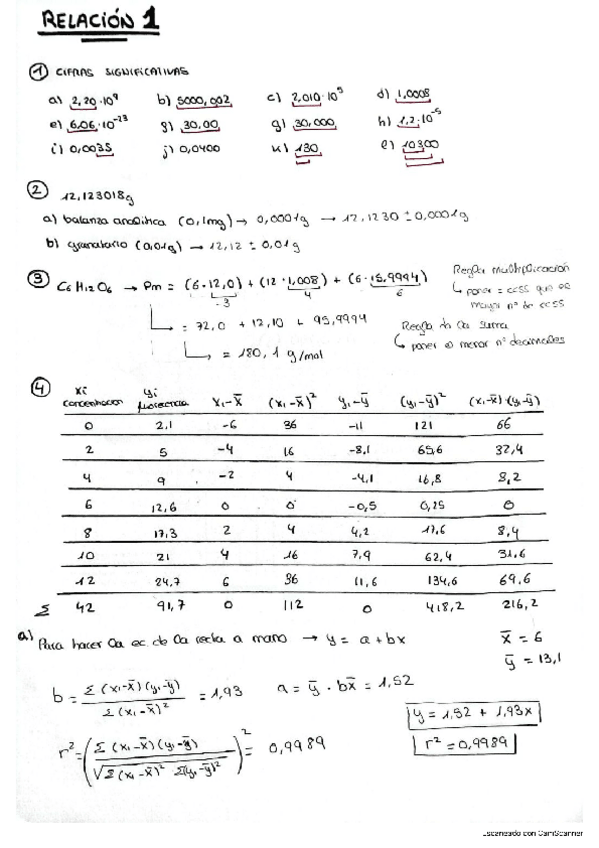 RELACIÓN 1
① CIFRAS SIGNIFICATIVAS
a) 2,20·10⁹ b) 5000,002 c) 2,010·10⁵ d) 1,0008
e) 6,06·10⁻²³ g) 30,00 g) 30,000 h) 1,2·10⁻⁵
i) 0,0035 j) 0,0400 k) 130 l) 10300
② 12,123018g
a) balanza analítica (0,1mg) → 0,0001g → 12,1230 ± 0,0001g
b) granatario (0,01g) → 12,12 ± 0,01g
③ C6 H12 O6 → Pm = (6·12,0) + (12·1,008) + (6·15,9994)
3 4 6
= 72,0 + 12,10 + 95,9994
= 180,1 g/mol
Regla multiplicación
↳ poner = ccss que el
mayor nº de ccss
Regla de la suma
↳ poner el menor nº decimales
④ xi concentracion yi fluorescencia xi-x̄ (xi-x̄)² yi-ȳ (yi-ȳ)² (xi-x̄)·(yi-ȳ)
0 2,1 -6 36 -11 121 66
2 5 -4 16 -8,1 65,6 32,4
4 9 -2 4 -4,1 16,8 8,2
6 12,6 0 0 -0,5 0,25 0
8 17,3 2 4 4,2 17,6 8,4
10 21 4 16 7,9 62,4 31,6
12 24,7 6 36 11,6 134,6 69,6
Σ 42 91,7 0 112 0 418,2 216,2
a) Para hacer la ec. de la recta a mano → y = a + bx
x̄ = 6
ȳ = 13,1
b = Σ(xi-x̄)(yi-ȳ) / Σ(xi-x̄)² = 1,93 a = ȳ - bx̄ = 1,52
y = 1,52 + 1,93x
r² = (Σ(xi-x̄)(yi-ȳ) / √Σ(xi-x̄)² Σ(yi-ȳ)²)² = 0,9989
r² = 0,9989
Escaneado con CamScanner